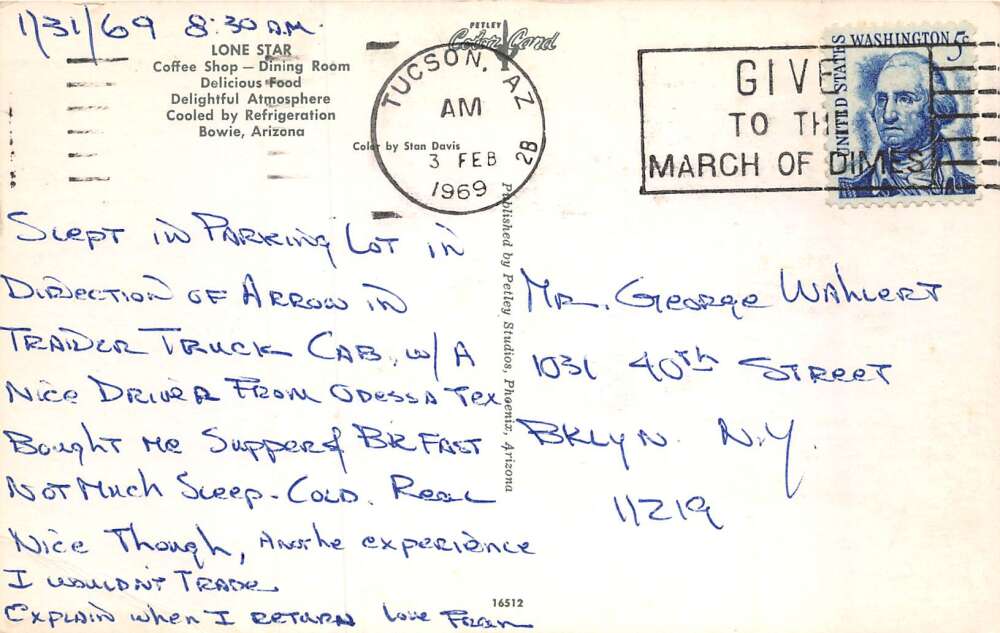 1/31/69 8:30 A.M.
LONE STAR
Coffee Shop — Dining Room
Delicious Food
Delightful Atmosphere
Cooled by Refrigeration
Bowie, Arizona
PETLEY
Color Card
Color by Stan Davis
TUCSON, AZ
AM
3 FEB
1969
2B
GIVE
TO TH
MARCH OF DIMES
UNITED STATES
WASHINGTON 5c
Slept in Parking Lot in
Direction of Arrow in
Trailer Truck Cab, w/ A
Nice Driver From Odessa Tex
Bought me Supper & BRFAST
Not Much Sleep - Cold. Real
Nice Though, experience
I wouldn't Trade
Explain when I return Love
Published by Petley Studios, Phoenix, Arizona
Mr. George Wahlert
1031 40th Street
Bklyn N.Y.
11219
16512